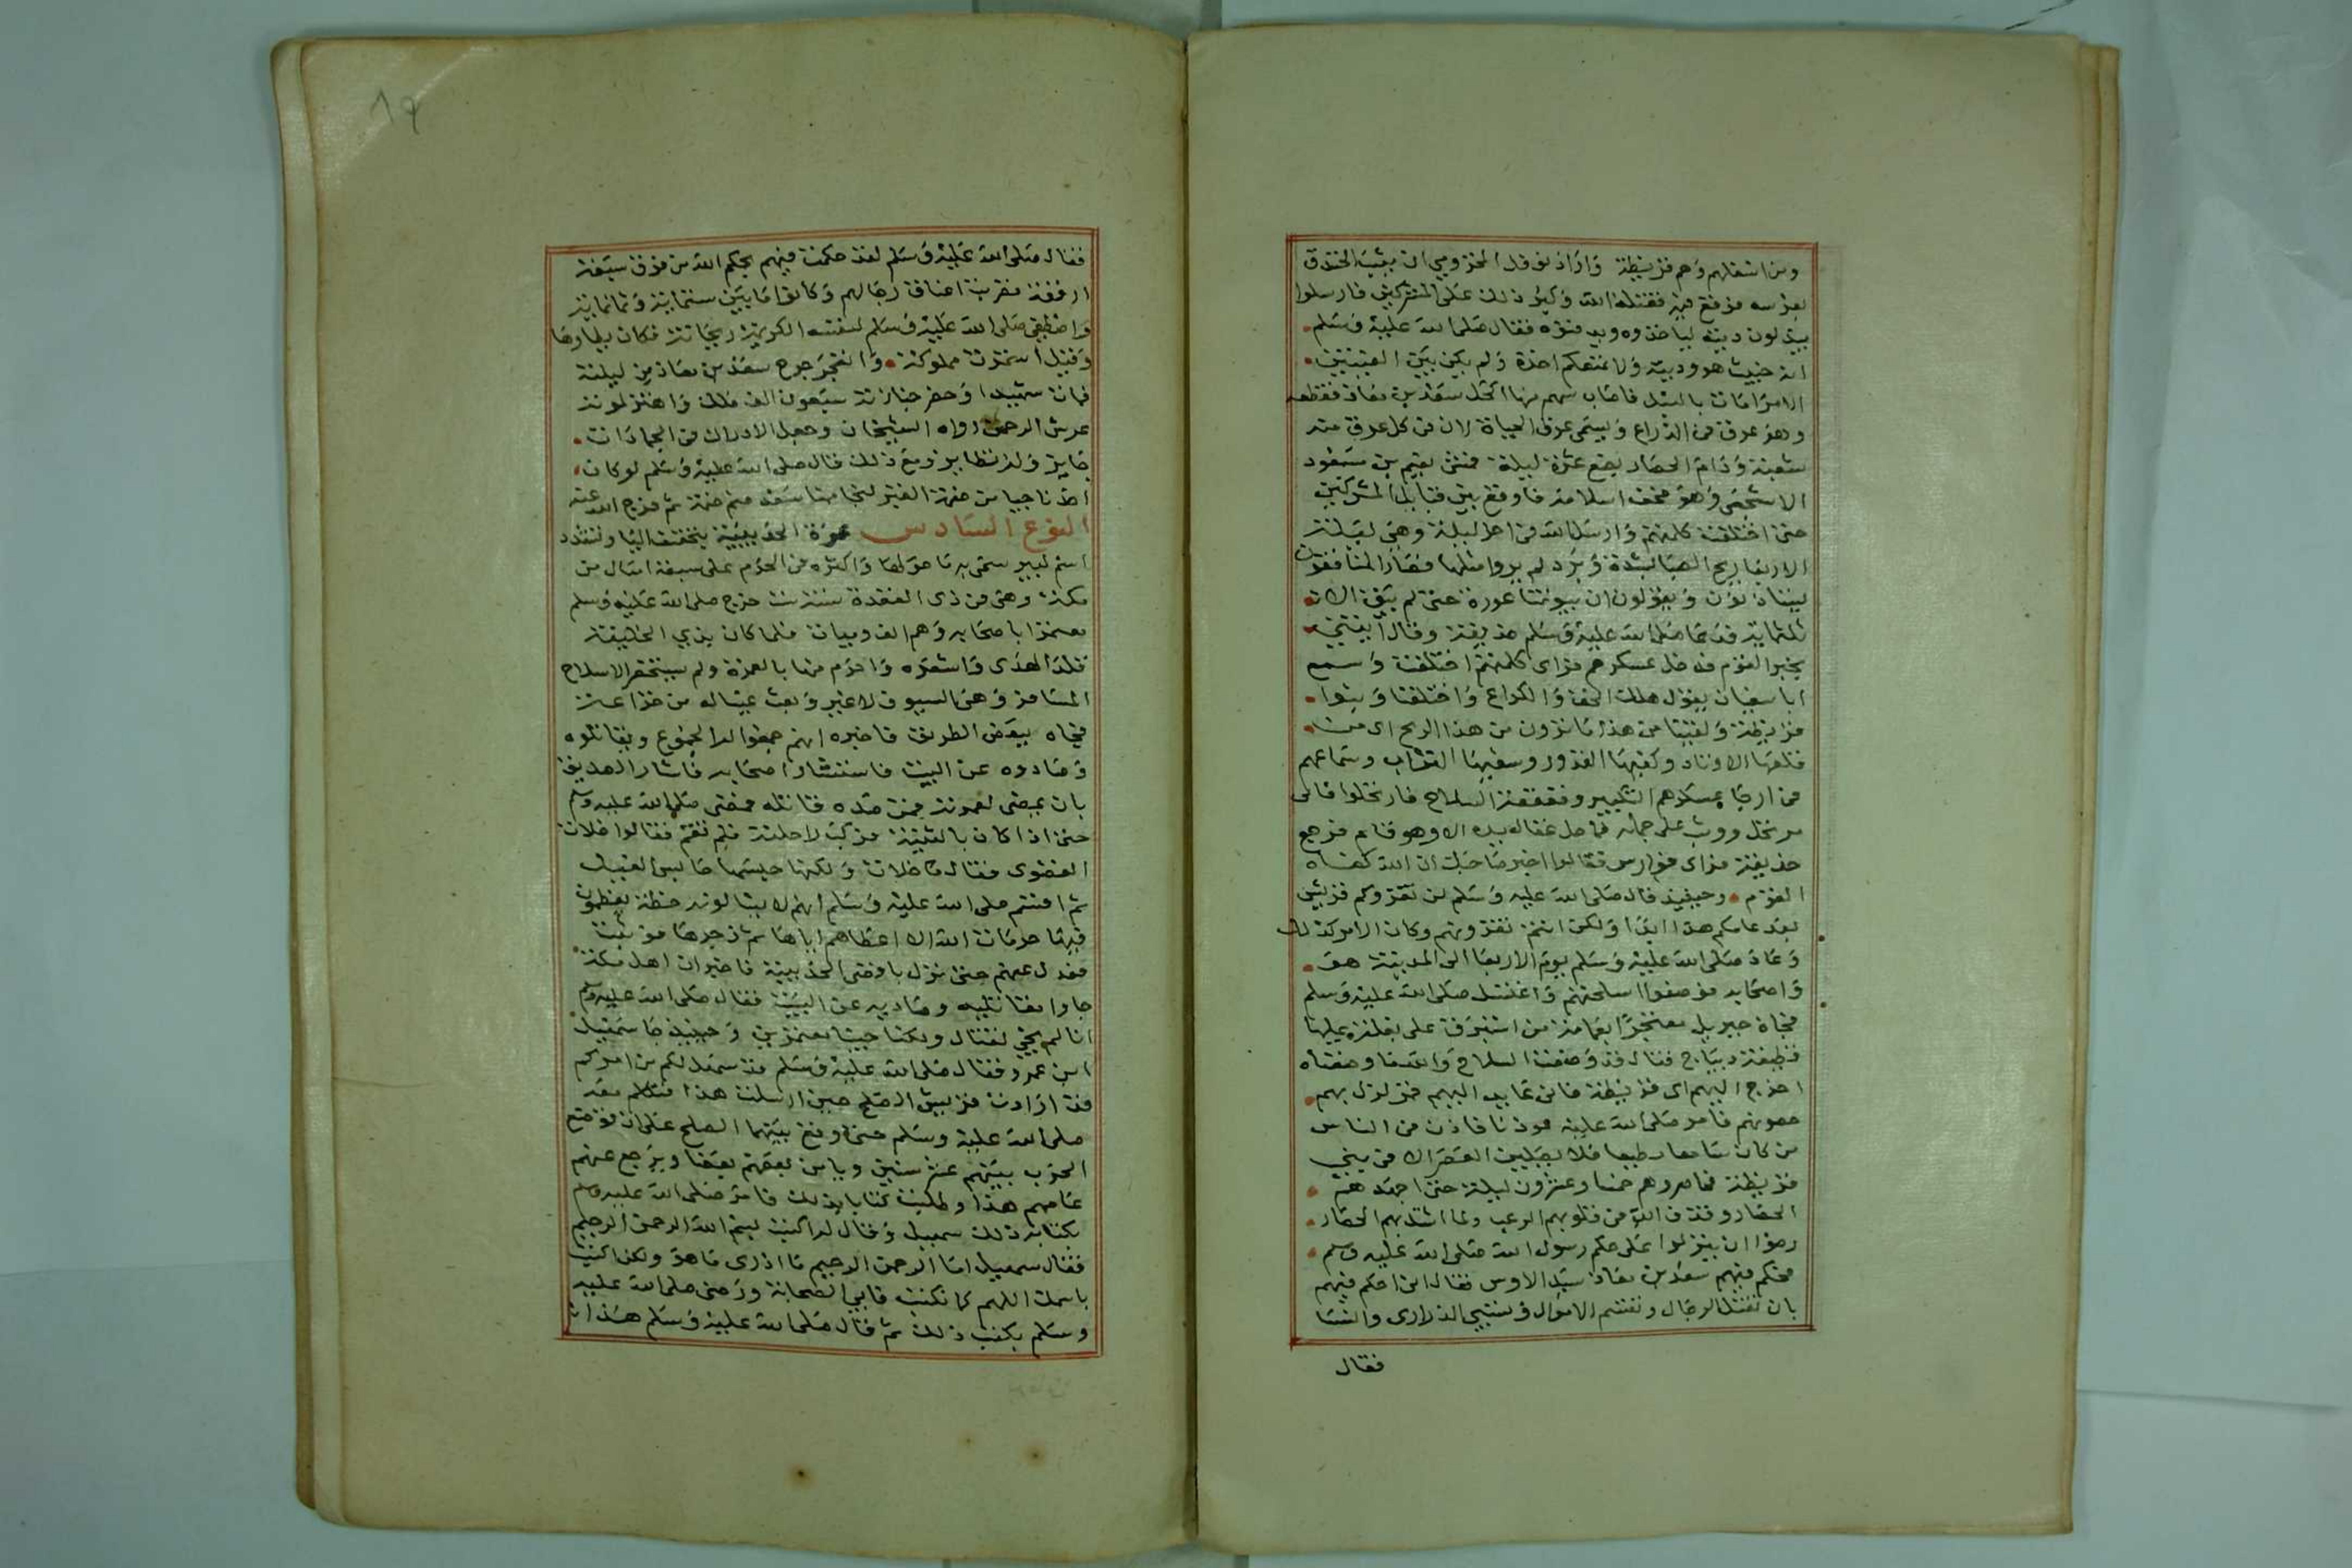 ومن اسفلهم وهم قريظة واراد نوفل المخزومي ان يثب الخندق
بفرسه فوقع فيه فقتله الله وكبر ذلك على المشركين فارسلوا
يبذلون ديته لياخذوه ويدفنوه فقال صلى الله عليه وسلم
انه خبيث هو وديته ولا نمنعكم اخذه ولم يكن بين الفئتين
الا مراماة بالنبل فاصاب سهم منها اكحل سعد بن معاذ فقطعه
وهو عرق في الذراع ويسمى عرق الحياة لان في كل عرق منه
شعبة ودام الحصار بضع عشرة ليلة فمشى نعيم بن مسعود
الاشجعي وهو مخف اسلامه فاوقع بين قبايل المشركين
حتى اختلفت كلمتهم وارسل الله في احد ليلة وهي ليلة
الاربعا ريح الصبا لشدة وبرد لم يروا مثلها فصار المنافقون
يستاذنون ويقولون ان بيوتنا عورة حتى لم يبق الا
ثلثماية فدعا صلى الله عليه وسلم حذيفة وقال ايتني
بخبر القوم فدخل عسكرهم فراى كلمتهم اختلفت وسمع
ابا سفيان يقول هلك الخف والكراع واختلفنا وبنوا
قريظة ولقينا من هذا ما ترون من هذا الريح اى من
قلعها الاوتاد وكفيها القدور وسفيها التراب وسماعهم
في ارجا عسكرهم التكبير وقعقعة السلاح فارتحلوا فانى
مرتحل ووثب على جمله فما حل عقال يده الا وهو قايم فرجع
حذيفة فراى فوارس فقالوا اخبر صاحبك ان الله كفاه
القوم وحينيذ قال صلى الله عليه وسلم لن تغزوكم قريش
بعد عامكم هذا ابدا ولكن انتم تغزونهم وكان الامر كذلك
وعاد صلى الله عليه وسلم يوم الاربعا الى المدينة هو
واصحابه فوضعوا اسلحتهم واغتسل صلى الله عليه وسلم
فجاه جبريل معتجرا بعمامة من استبرق على بغلة عليها
قطيفة ديباج فقال قد وضعت السلاح والله ما وضعناه
اخرج اليهم اى قريظة فانى عامد اليهم فمزلزل بهم
حصونهم فامر صلى الله عليه موذنا فاذن في الناس
من كان سامعا مطيعا فلا يصلين العصر الا في بني
قريظة فحاصروهم خمسا وعشرون ليلة حتى اجهدهم
الحصار وقذف الله في قلوبهم الرعب ولما اشتد بهم الحصار
رضوا ان ينزلوا على حكم رسول الله صلى الله عليه وسلم
فحكم فيهم سعد بن معاذ سيد الاوس فقال انى احكم فيهم
بان تقتل الرجال وتقتسم الاموال وتسبى الذرارى والنسا
فقال
١٩
فقال صلى الله عليه وسلم لقد حكمت فيهم بحكم الله من فوق سبعة
ارقعة فضربت اعناق رجالهم وكانوا ما بين ستماية وثمانماية
واصطفى صلى الله عليه وسلم لنفسه الكريمة ريحانة فكان يطاوها
وقيل استمرت مملوكة وانفجر جرح سعد بن معاذ من ليلته
فمات شهيدا وحضر جنازته سبعون الف ملك واهتز لموته
عرش الرحمن رواه الشيخان وجعل الادراك في الجمادات
جايز وله نظاير ومع ذلك قال صلى الله عليه وسلم لو كان
احد ناجيا من ضمة القبر لنجا منها سعد ضم ضمة ثم فرج الله عنه
النوع السادس عمرة الحديبية بتخفيف اليا وتشدد
اسم لبير سمى به ما حولها واكثره من الحرم على سبعة اميال من
مكة وهى في ذى القعدة سنة ست خرج صلى الله عليه وسلم
معتمرا باصحابه وهم الف وميات فلما كان بذي الحليفة
قلد الهدى واشعره واحرم منها بالعمرة ولم يستحضر الا سلاح
المسافر وهى السيوف لا غير وبعث عينا له من خزاعة
فجاه ببعض الطريق فاخبره انهم جمعوا له الجموع ويقاتلوه
وصادوه عن البيت فاستشار اصحابه فاشار الصديق
بان يمضى لعمرته فمن صده قاتله فمضى صلى الله عليه وسلم
حتى اذا كان بالثنية بركت راحلته فلم تقم فقالوا خلات
القصوى فقال ما خلات ولكنها حبسها حابس الفيل
ثم اقسم صلى الله عليه وسلم انهم لا يسالونه خطة يعظمون
فيها حرمات الله الا اعطاهم اياها ثم زجرها فوثبت
فعدل عنهم حتى نزل باقصى الحديبية فاخبر ان اهل مكة
جاوا مقاتليه وصاديه عن البيت فقال صلى الله عليه وسلم
انا لم يجي لقتال ولكنا جينا معتمرين وحينيذ جا سهيل
ابن عمرو فقال صلى الله عليه وسلم قد سهل لكم من امركم
قد ارادت قريش الصلح حين ارسلت هذا فتكلم معه
صلى الله عليه وسلم حتى وقع بينهما الصلح على ان توضع
الحرب بينهم عشر سنين ويامن بعضهم بعضا ويرجع عنهم
عامهم هذا وطلبت كتابا بذلك فامر صلى الله عليه وسلم
بكتابة ذلك سهيل وقال له اكتب بسم الله الرحمن الرحيم
فقال سهيل اما الرحمن الرحيم ما ادرى ما هو ولكن اكتب
باسمك اللهم كما تكتب فابى الصحابة ورضى صلى الله عليه
وسلم بكتب ذلك ثم قال صلى الله عليه وسلم هذا